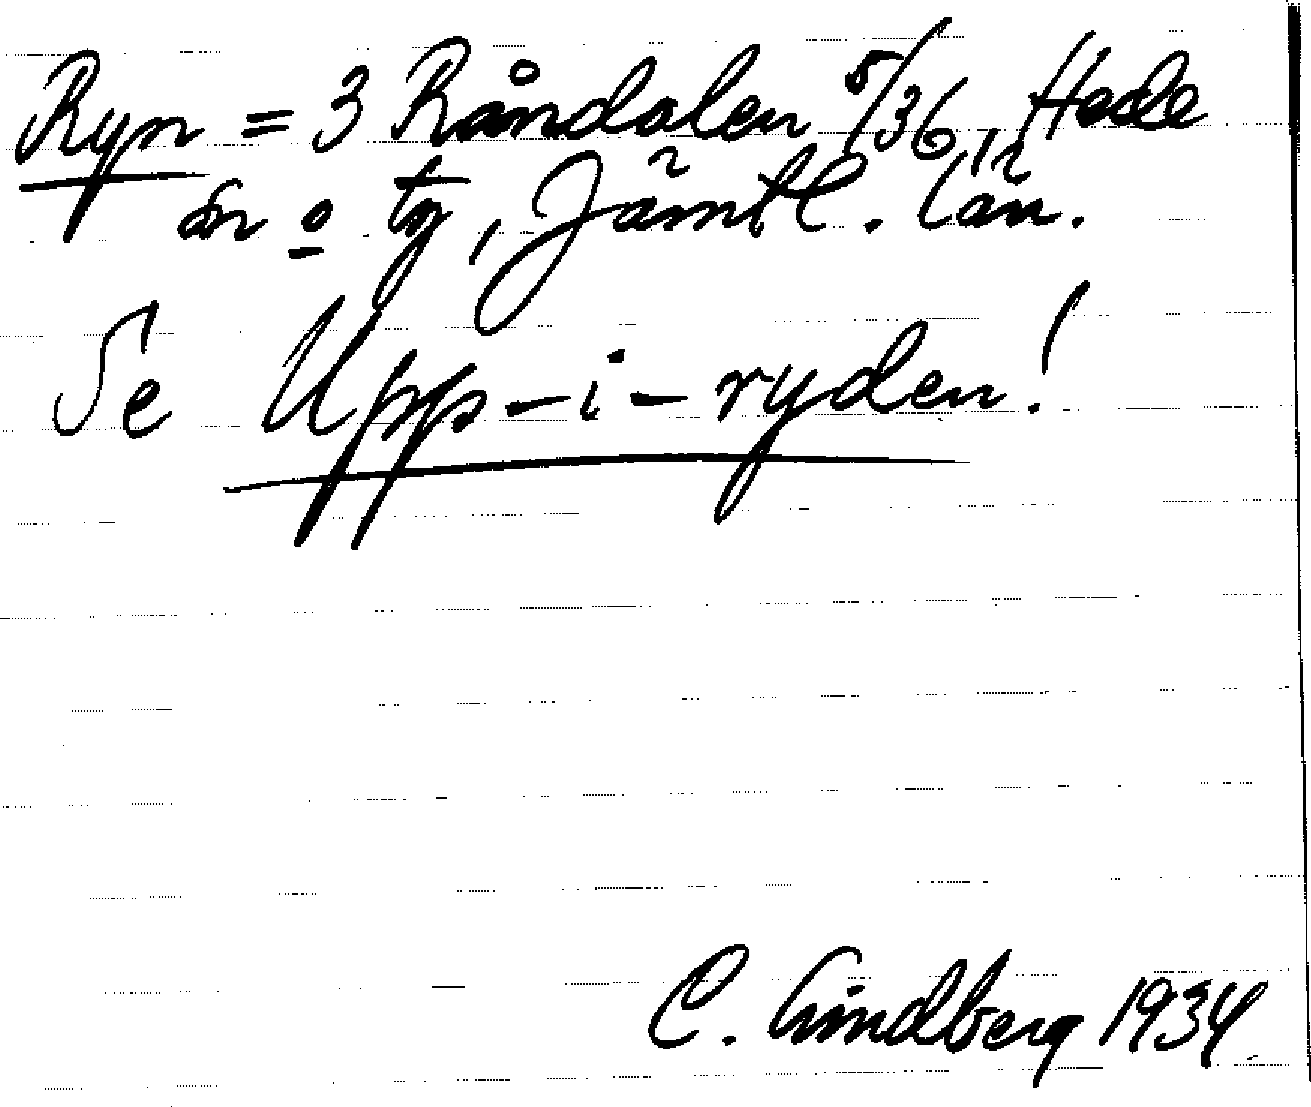 Ryn = 3 Råndalen 5/36, i Hede
sn o tg, Jämtl. län.
Se Upp-i-ryden!
C. Lindberg 1934